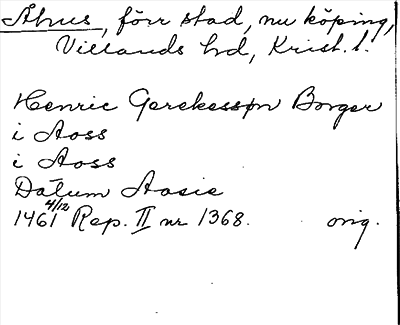 Åhus, förr stad, nu köping,
Villands hd, Krist. l.
Henric Gerekesson Borger
i Aoss
i Aoss
Datum Aosie
1461 4/12 Rep. II nr 1368. orig.